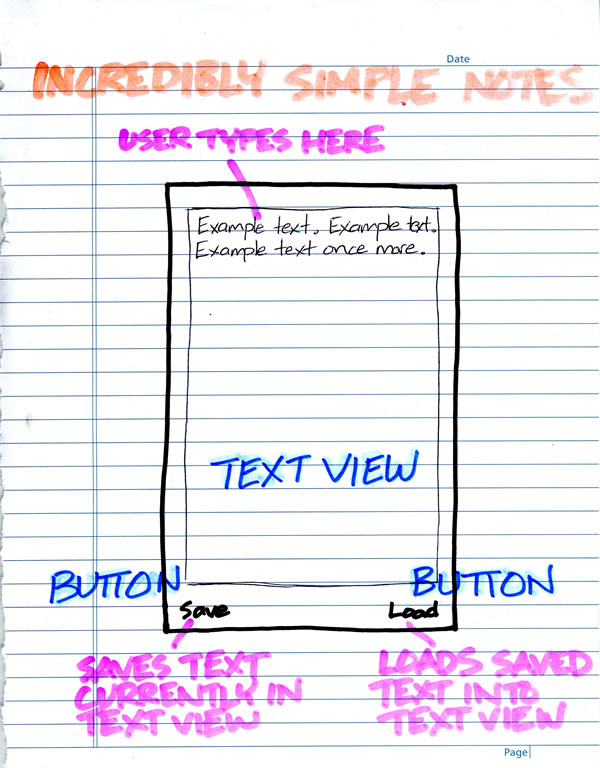 Date
INCREDIBLY SIMPLE NOTES
USER TYPES HERE
Example text. Example text.
Example text once more.
TEXT VIEW
BUTTON BUTTON
Save Load
SAVES TEXT
CURRENTLY IN
TEXT VIEW
LOADS SAVED
TEXT INTO
TEXT VIEW
Page